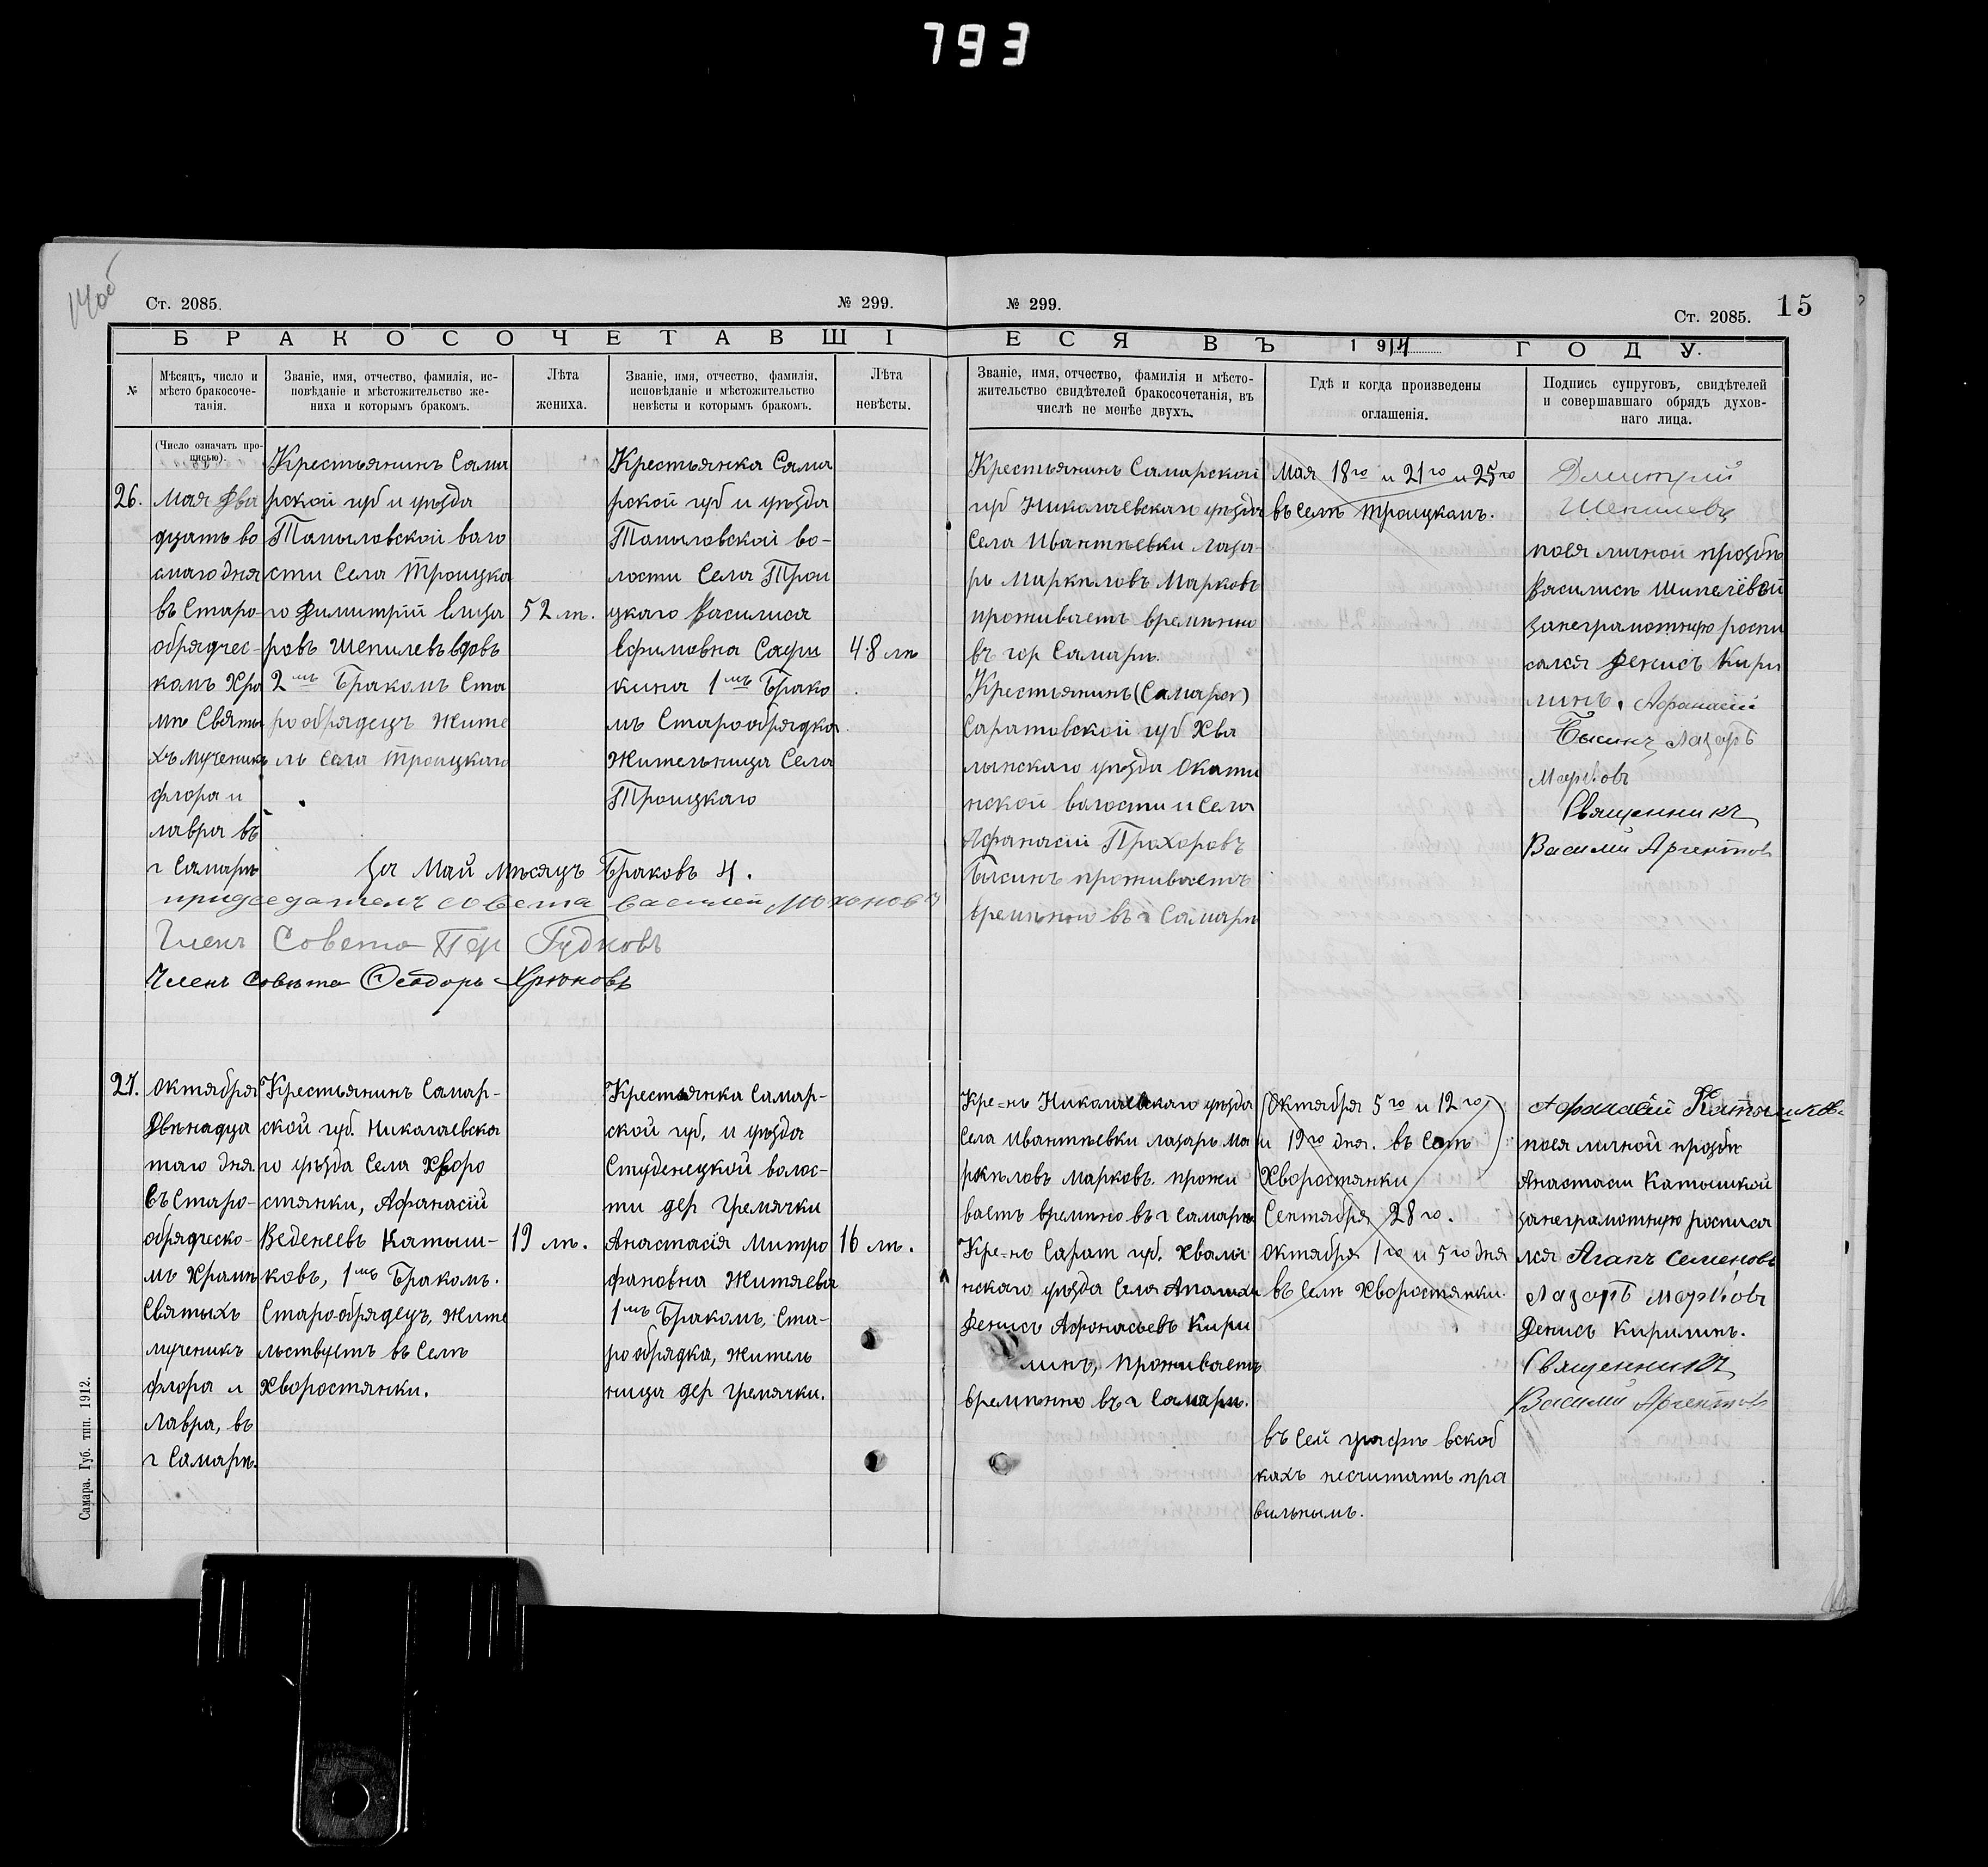 793
14об
Ст. 2085.
№ 299.
№ 299.
Ст. 2085.
15
БРАКОСОЧЕТАВШІ
ЕСЯ ВЪ 1914 ГОДУ.
№
Мѣсяцъ, число и
мѣсто бракосоче-
танія.
Званіе, имя, отчество, фамилія, ис-
повѣданіе и мѣстожительство же-
ниха и которымъ бракомъ.
Лѣта
жениха.
Званіе, имя, отчество, фамилія,
исповѣданіе и мѣстожительство
невѣсты и которымъ бракомъ.
Лѣта
невѣсты.
Званіе, имя, отчество, фамилія и мѣсто-
жительство свидѣтелей бракосочетанія, въ
числѣ не менѣе двухъ.
Гдѣ и когда произведены
оглашенія.
Подпись супруговъ, свидѣтелей
и совершавшаго обрядъ духов-
наго лица.
(Число означать про-
писью).
26.
Мая два
дцать во
смаго дня
въ Старо-
обрядчес-
комъ Хра
мѣ Святы
хъ мученикъ
флора и
лавра въ
г Самарѣ
Крестьянинъ Сама
рской губ и уѣзда
Томыловской воло
сти Села Троицка
го Димитрій елиза
ровъ Шепилевъ вдовъ
2мъ Бракомъ Ста
рообрядецъ Жите
ль села Троицкаго
52 лт.
Крестьянка Сама
рской губ и уѣзда
Томыловской во-
лости Села Трои
цкаго Василиса
ефимовна Сафи
кина 1мъ Брако
мъ Старообрядка
Жительница Села
Троицкаго
48 лт
Крестьянинъ Самарской
губ Николаевскаго уѣзда
Села Ивантѣевки лаза-
рь Маркѣловъ Марковъ
проживаетъ времѣнно
въ гор Самарѣ.
Крестьянинъ (Самарск)
Саратовской губ Хва
лынскаго уѣзда
волости и села
Афанасій Прохоровъ
Бысинъ проживаетъ
времѣнно въ г Самарѣ
Мая 18го и 21го и 25го
въ селѣ Троицкомъ.
Дмитрий
Шепилевъ
поея личной прозбѣ
Василисѣ Шипелёвъй
занеграмотную роспи
сался Денисъ Кири
линъ. Афанасій
Бысинъ Лазарь
Марковъ
Священникъ
Василій Аргентов
За Май мѣсяцъ Браковъ 4.
придседатель совета василей Мохоновъ
Членъ Совета Пер Гудковъ
Членъ Совѣта Ѳеодоръ Хрюковъ
27.
Октября
Двѣнадца
таго дня
въ Старо-
обрядческо-
мъ Храмѣ
Святыхъ
мученикъ
флора и
Лавра, въ
г Самарѣ.
Крестьянинъ Самар-
ской губ. Николаевска
го уѣзда Села Хворо
стянки, Афанасій
Веденеевъ Катыш-
ковъ, 1мъ Бракомъ.
Старо-обрядецъ, Жите
льствуетъ въ Селѣ
Хворостянки.
19 лт.
Крестьянка Самар-
ской губ, и уѣзда
Студенецкой волос-
ти дер Гремячки
Анастасія Митро
фановна Житяева
1мъ Бракомъ, Ста-
рообрядка, Житель
ница дер Гремячки.
16 лт.
Кре=нъ Николаевскаго уѣзда
Села Ивантѣевки лазарь Ма
ркѣловъ Марковъ. прожи
ваетъ времѣно въ г Самарѣ
Кре=нъ Сарат губ. Хвалы
нскаго уѣзда Села
Денисъ Афонасьевъ Кири
линъ, проживаетъ
времѣнно въ г Самарѣ.
(Октября 5го и 12го
и 19го дня. въ Селѣ
Хворостянки)
Сентября 28го.
октября 1го и 5го дня
въ Селѣ Хворостянки.
въ сей графѣ вскоб
кахъ несчитать пра
вильнымъ.
Афанасій Катышков
поея личной прозбѣ
Анастасіи Катышкой
занеграмотную росписа
лся Агапъ Семеновъ
Лазарь Марковъ
Денисъ Кирилинъ.
Священникъ
Василій Аргентов
Самара. Губ. тип. 1912.